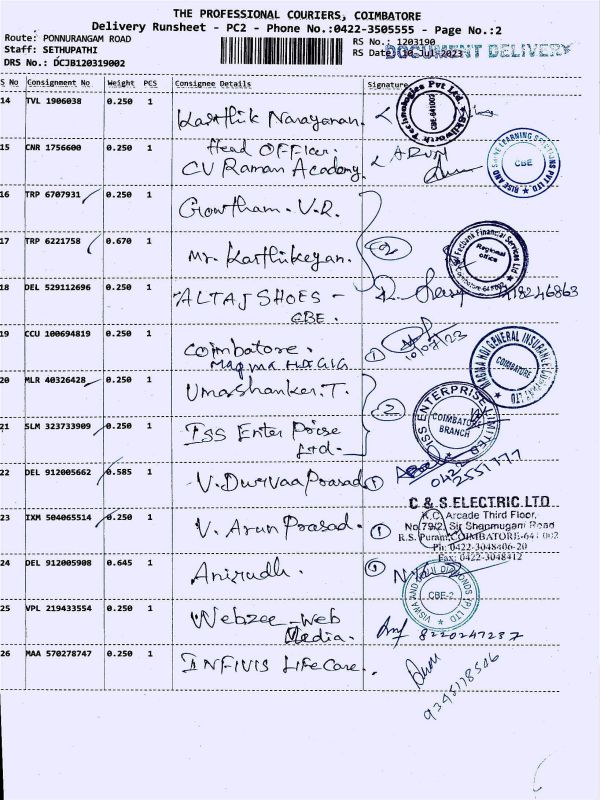 THE PROFESSIONAL COURIERS, COIMBATORE
Delivery Runsheet - PC2 - Phone No.:0422-3505555 - Page No.:2
Route: PONNURANGAM ROAD
Staff: SETHUPATHI
DRS No.: DCJB120319002
RS No.: 1203190
RS Date: 10-Jul-2023
DOCUMENT DELIVERY
S No Consignment No Weight PCS Consignee Details Signature
14 TVL 1906038 0.250 1 Karthik Narayanan.
15 CNR 1756600 0.250 1 Head OFFicer.
CV Raman Academy ARUN
RISE AND SHINE LEARNING SOLUTIONS PVT LTD
CBE
16 TRP 6707931 0.250 1 Gowtham. V.R.
17 TRP 6221758 0.670 1 Mr. Karthikeyan.
02
Regional
office
18 DEL 529112696 0.250 1 ALTAJ SHOES -
CBE.
19 CCU 100694819 0.250 1 Coimbatore.
Magma HDI GIG 1
10/07/23
MAGMA HDI GENERAL INSURANCE
COIMBATORE
20 MLR 40326428 0.250 1 Umashanker. T.
2
21 SLM 323733909 0.250 1 ISS Enter Prise
Ltd.
ISS ENTERPRISE LIMITED
COIMBATORE
BRANCH
0422
2551777
22 DEL 912005662 0.585 1 V. Durvaa Prasad 1
C & S ELECTRIC LTD
K.C. Arcade Third Floor,
No.79/2, Sir Shanmugam Road
R.S. Puram, COIMBATORE-641 002
Ph: 0422-3048406-20
Fax: 0422-3048412
23 IXM 504065514 0.250 1 V. Arun Prasad. 1
24 DEL 912005908 0.645 1 Anirudh.
CBE-2
25 VPL 219433554 0.250 1 Webzee-web
Media. 8220247237
26 MAA 570278747 0.250 1 INFIVIS LifeCare.
9345118546